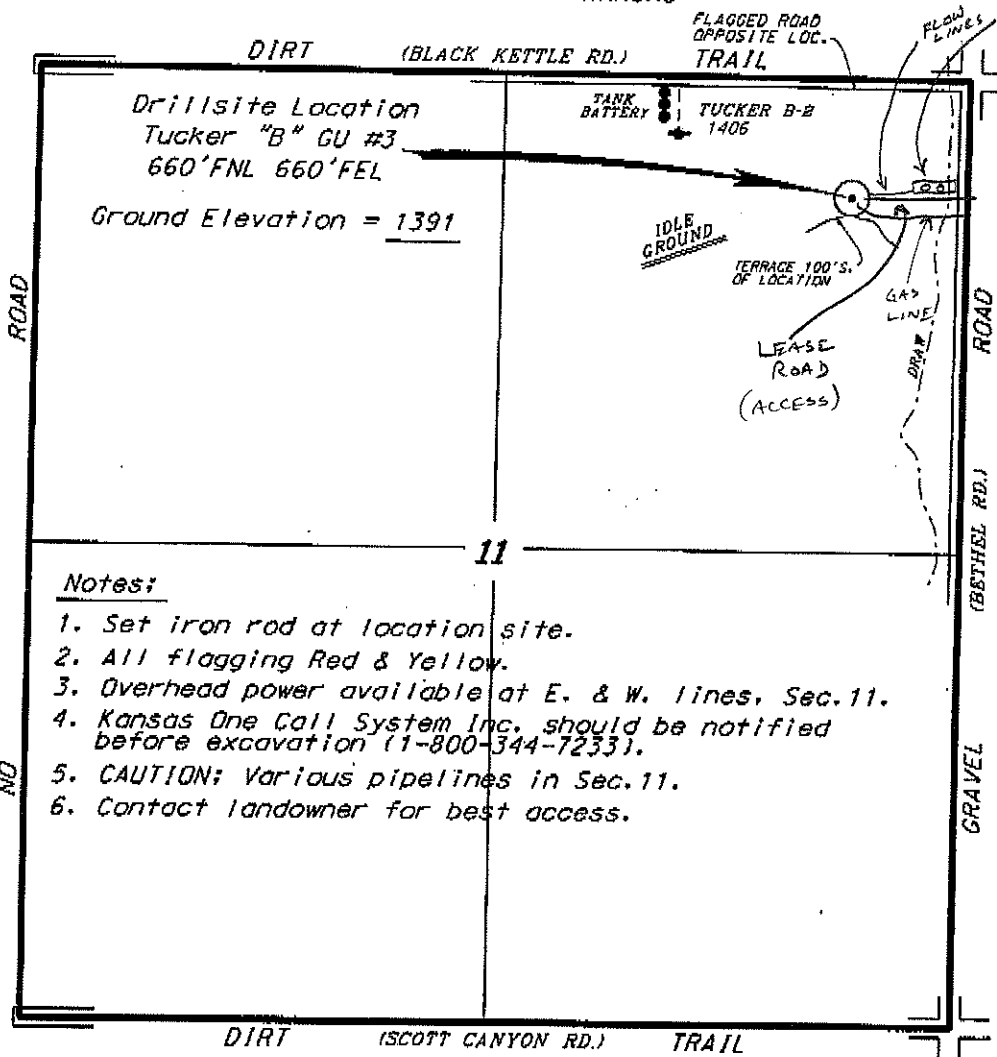 FLAGGED ROAD
OPPOSITE LOC.
FLOW
LINES
DIRT (BLACK KETTLE RD.) TRAIL
Drillsite Location
Tucker "B" GU #3
660'FNL 660'FEL
Ground Elevation = 1391
TANK
BATTERY
TUCKER B-2
1406
IDLE
GROUND
TERRACE 100'S.
OF LOCATION
GAS
LINE
LEASE
ROAD
(ACCESS)
DRAW
ROAD
ROAD
(BETHEL RD.)
11
Notes:
1. Set iron rod at location site.
2. All flagging Red & Yellow.
3. Overhead power available at E. & W. lines, Sec.11.
4. Kansas One Call System Inc. should be notified
before excavation (1-800-344-7233).
5. CAUTION: Various pipelines in Sec.11.
6. Contact landowner for best access.
NO
GRAVEL
DIRT (SCOTT CANYON RD.) TRAIL